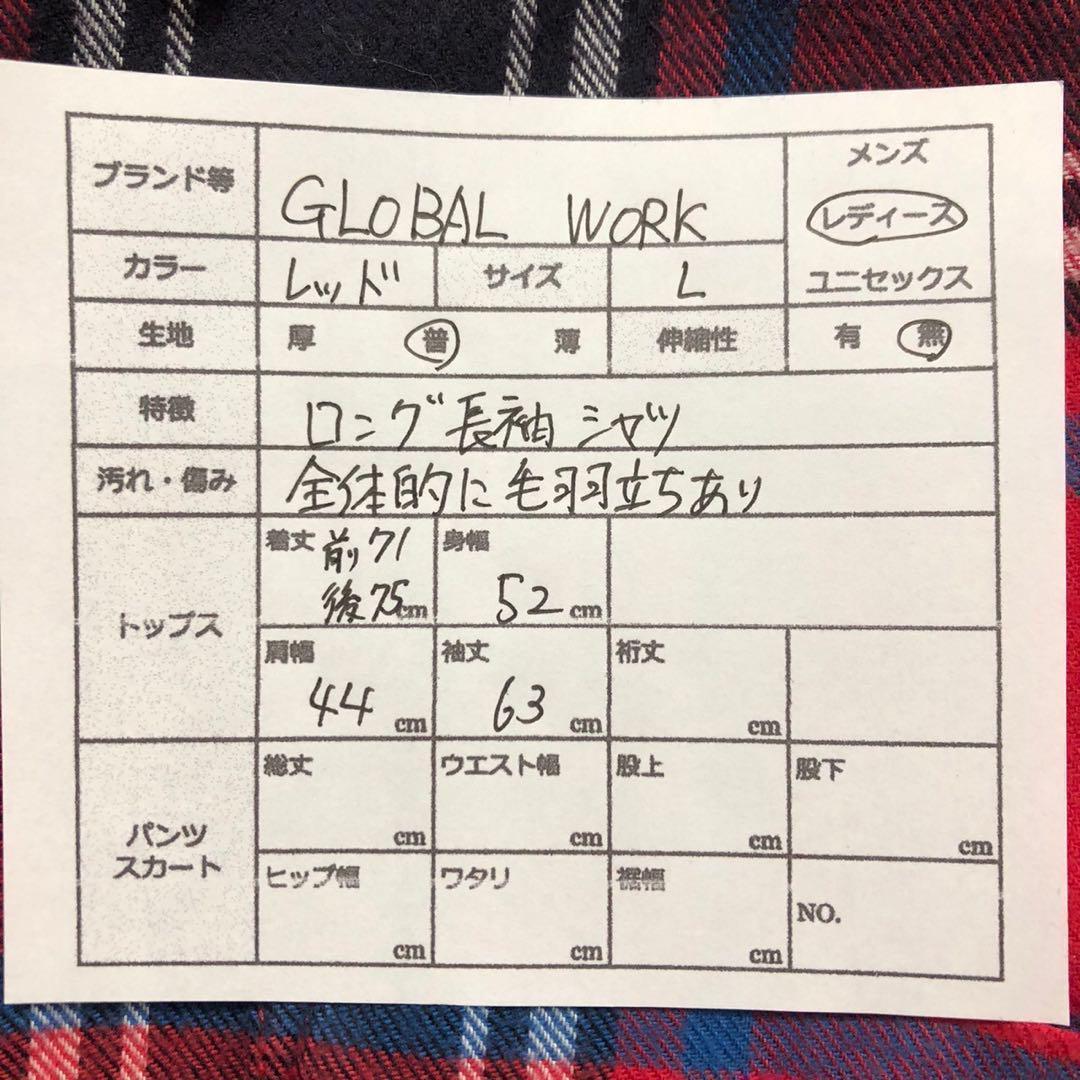 ブランド等 GLOBAL WORK メンズ
レディース
カラー レッド サイズ L ユニセックス
生地 厚 普 薄 伸縮性 有 無
特徴 ロング長袖シャツ
汚れ・傷み 全体的に毛羽立ちあり
トップス
着丈 前71 後75cm 身幅 52cm
肩幅 44cm 袖丈 63cm 裄丈 cm
パンツ
スカート
総丈 cm ウエスト幅 cm 股上 cm 股下 cm
ヒップ幅 cm ワタリ cm 裾幅 cm NO.